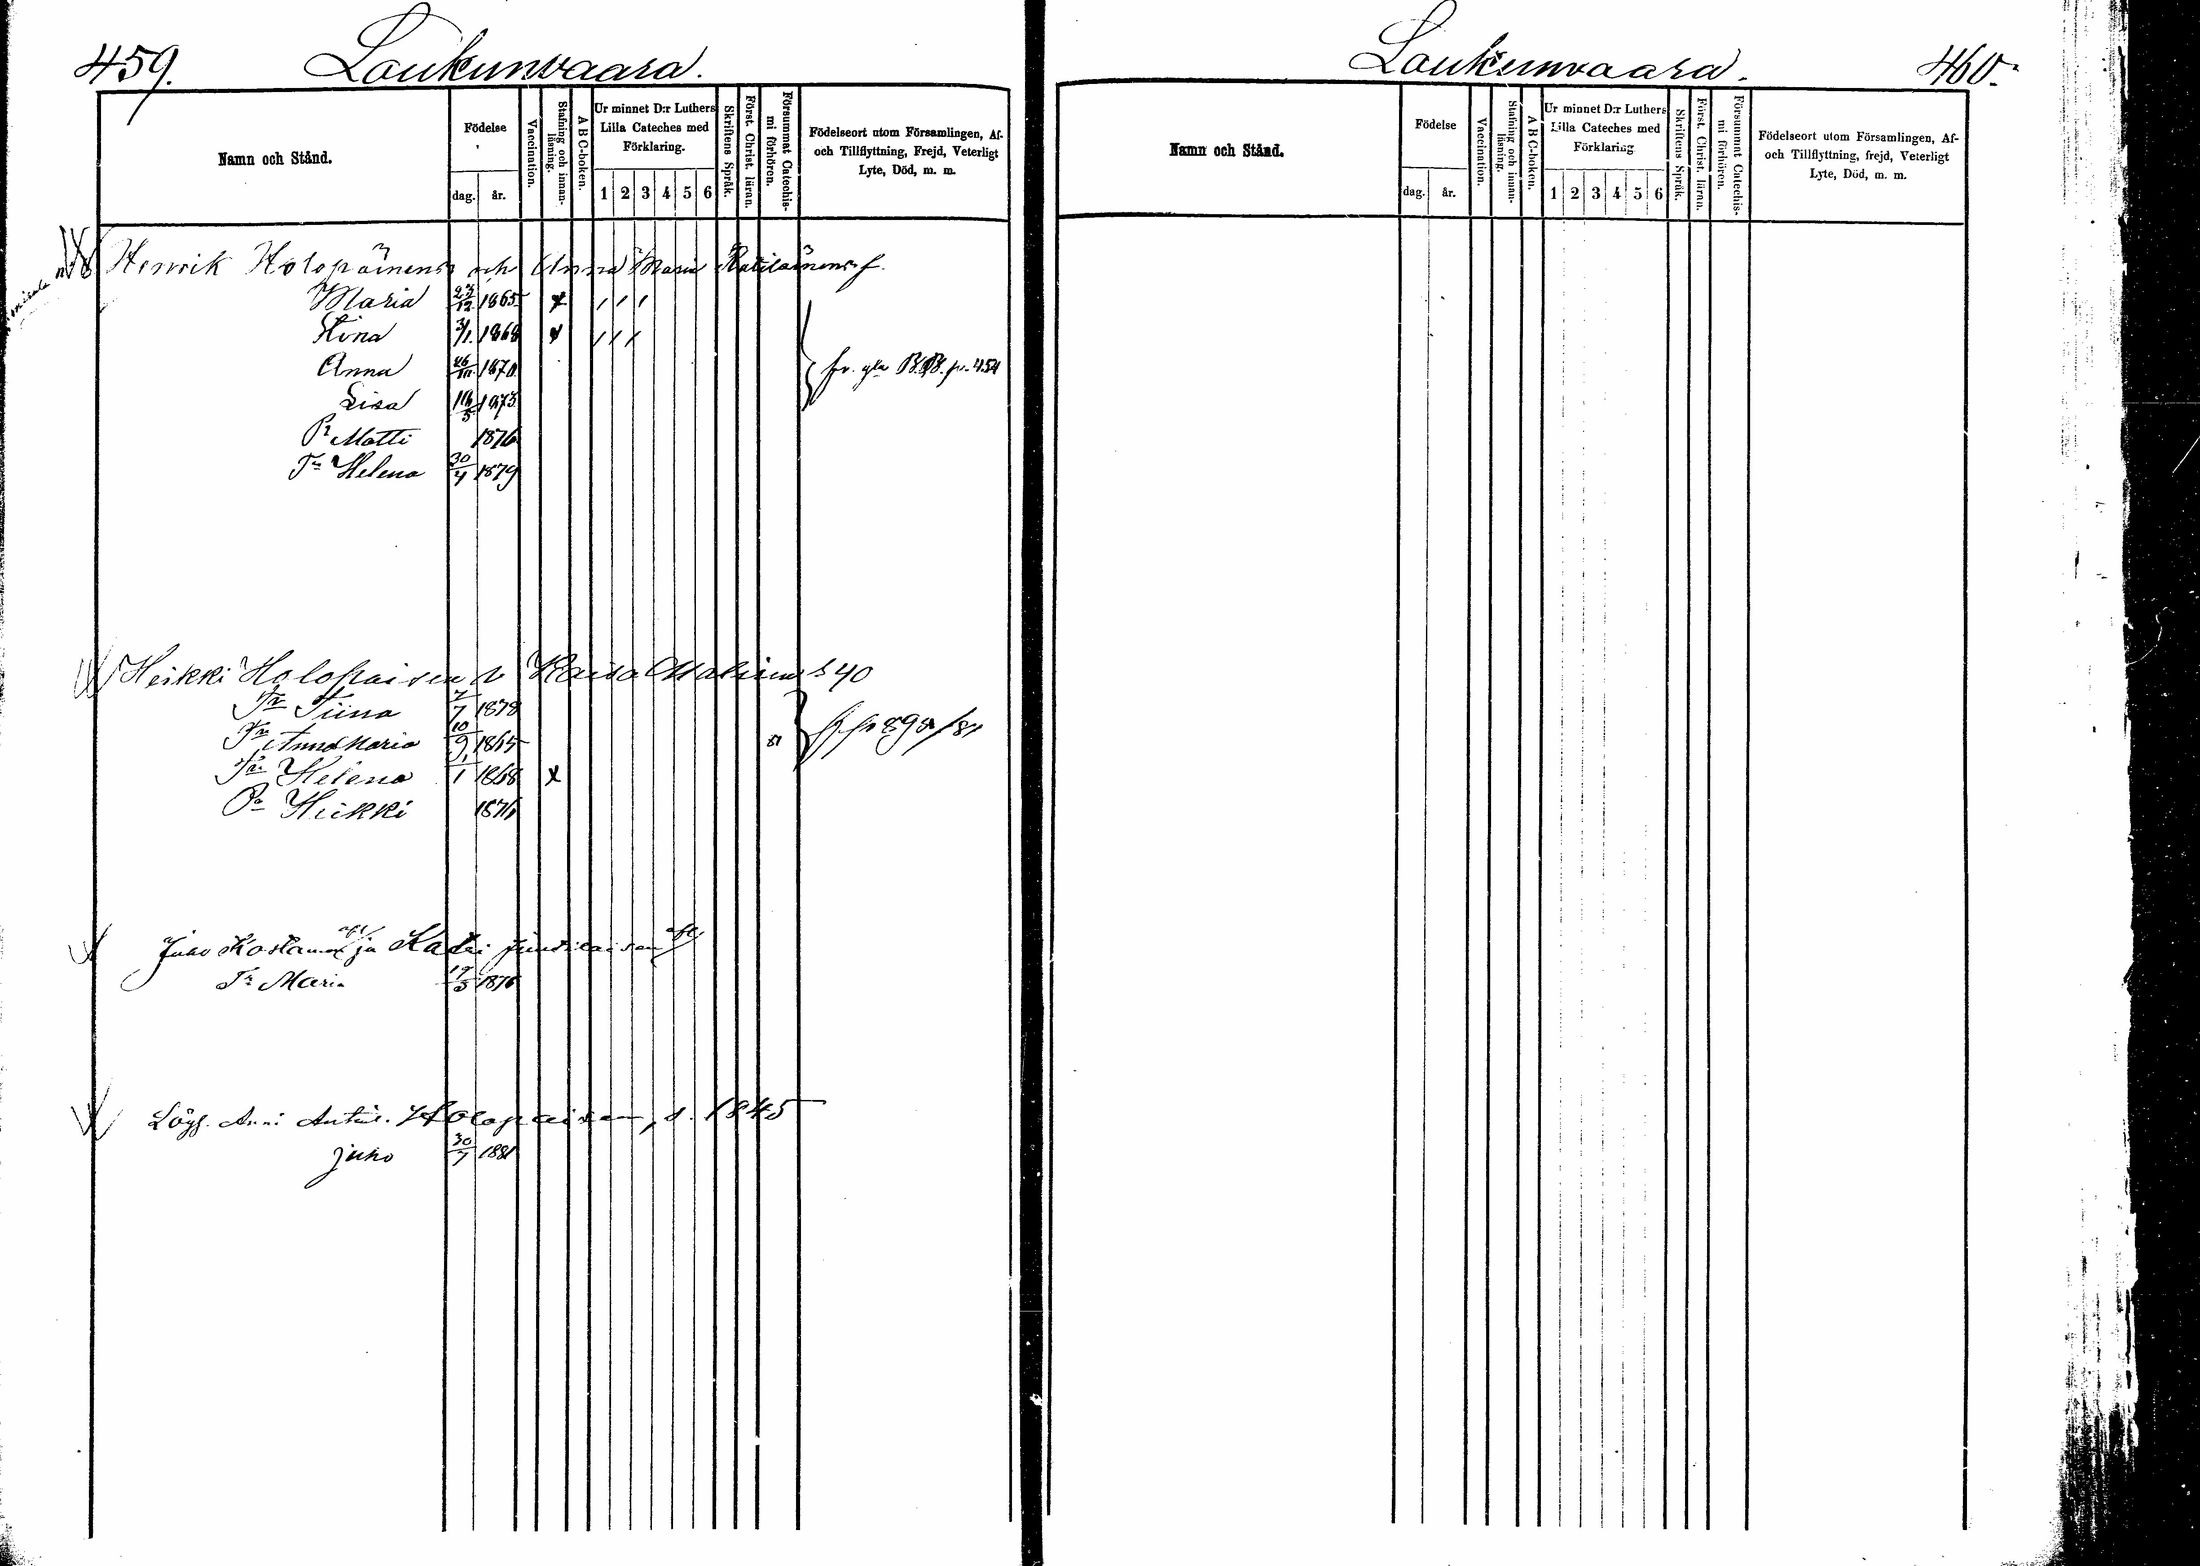 459. Loukunvaara.
Namn och Stånd.
Födelse
dag. år.
Vaccination.
Stafning och innan-
läsning.
A B C-boken.
Ur minnet D:r Luthers
Lilla Cateches med
Förklaring.
1 2 3 4 5 6
Skriftens Språk.
Först. Christ. läran.
Försummat Catechis-
mi förhören.
Födelseort utom Församlingen, Af-
och Tillflyttning, Frejd, Veterligt
Lyte, Död, m. m.
Henrik Holopäinens och Anna Maria
Maria 23/12 1865 x / / /
Stina 3/1 1868 x / / /
Anna 26/10 1870
Lisa 16/5 1873
fr. gla B.B. p. 454
Pr Matti 1876
Tr Helena 30/4 1879
Heikki Holopaisen s. 40
Tr Tiina 7/7 1878
Tr Anna Maria 10/9 1865 81
Tr Helena 1/1 1868 x
Pa Heikki 1876
Juho ja Katri
Tr Maria 19/5 1876
Löys. Anni Holopaisen, s. 1845
Juho 30/7 1881
Loukunvaara. 460.
Namn och Stånd.
Födelse
dag. år.
Vaccination.
Stafning och innan-
läsning.
A B C-boken.
Ur minnet D:r Luthers
Lilla Cateches med
Förklaring
1 2 3 4 5 6
Skriftens Språk.
Först. Christ. läran.
Försummat Catechis-
mi förhören.
Födelseort utom Församlingen, Af-
och Tillflyttning, frejd, Veterligt
Lyte, Död, m. m.